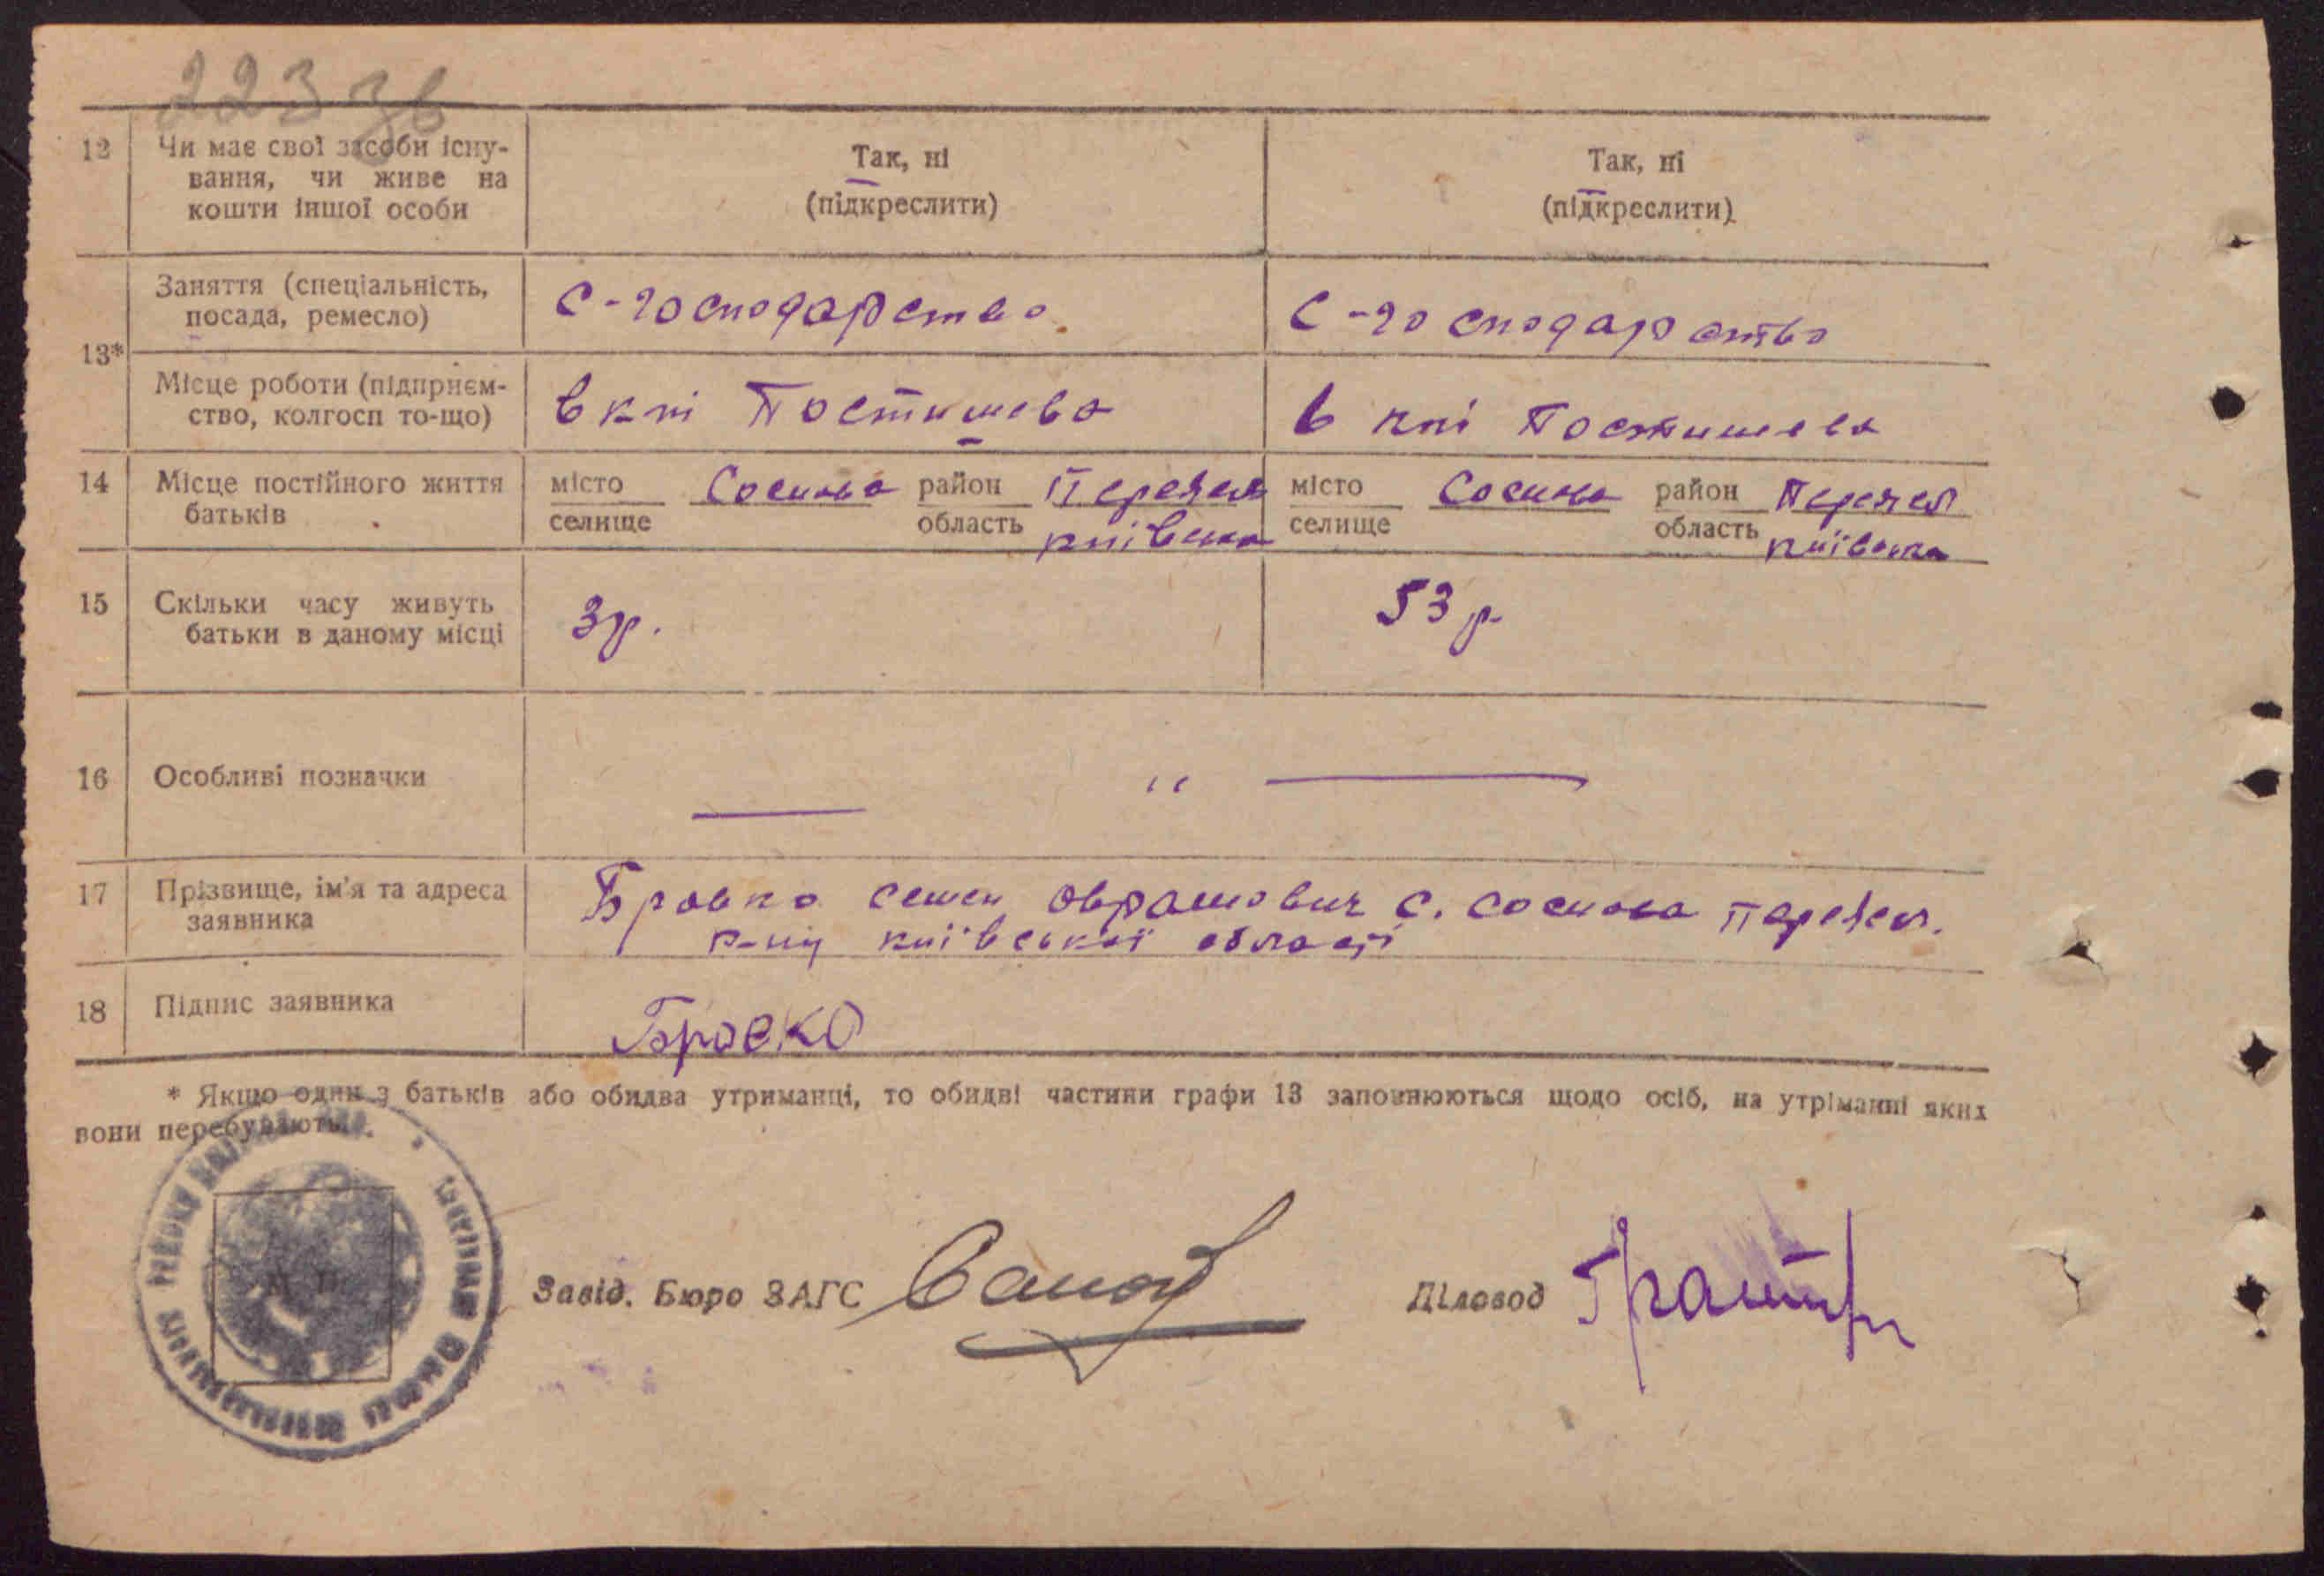 223 зв
12 Чи має свої засоби існу-
вання, чи живе на
кошти іншої особи
Так, ні
(підкреслити)
Так, ні
(підкреслити)
13*
Заняття (спеціальність,
посада, ремесло)
С-господарство
С-господарство
Місце роботи (підприєм-
ство, колгосп то-що)
в к-пі Постишева
в к-пі Постишева
14 Місце постійного життя
батьків
місто
селище
Соснова
район
область
Переясл
київська
місто
селище
Соснова
район
область
Переясл
київська
15 Скільки часу живуть
батьки в даному місці
3 р.
53 р.
16 Особливі позначки
— " —
17 Прізвище, ім'я та адреса
заявника
Бровко семен Оврамович с. соснова переясл.
р-ну київської області
18 Підпис заявника
Бровко
* Якщо один з батьків або обидва утриманці, то обидві частини графи 13 заповнюються щодо осіб, на утріманні яких
вони перебувають.
Завід. Бюро ЗАГС
Діловод